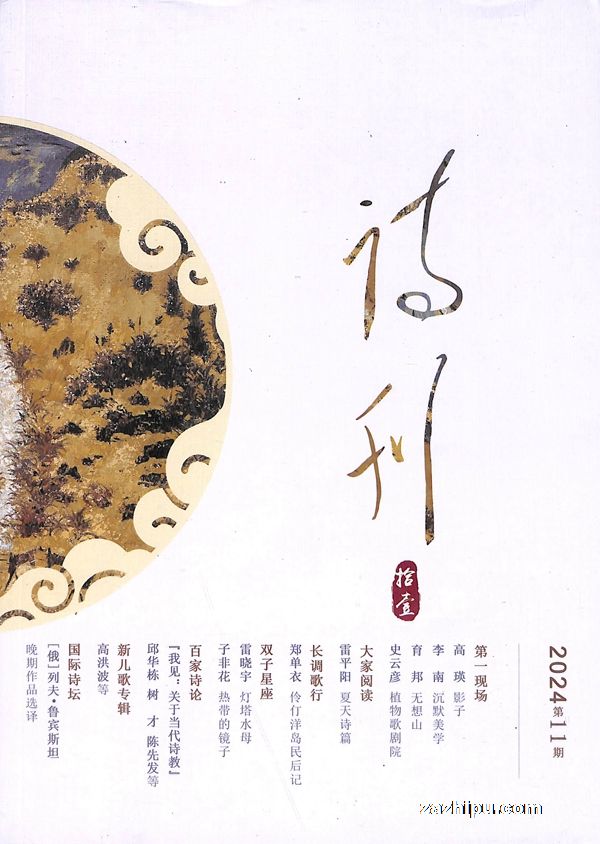 诗刊
拾壹
2024第11期
第一现场
高 瑛 影子
李 南 沉默美学
育 邦 无想山
史云彦 植物歌剧院
大家阅读
雷平阳 夏天诗篇
长调歌行
郑单衣 伶仃洋岛民后记
双子星座
雷晓宇 灯塔水母
子非花 热带的镜子
百家诗论
『我见：关于当代诗教』
邱华栋 树 才 陈先发等
新儿歌专辑
高洪波等
国际诗坛
[俄]列夫·鲁宾斯坦
晚期作品选译
zazhipu.com